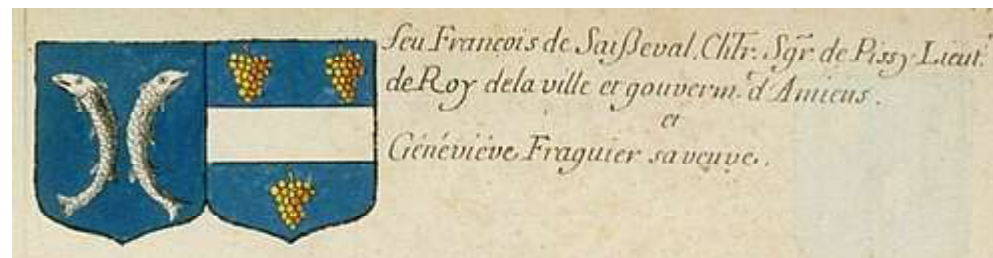 feu François de Saißeval. Chlr. Sgr. de Pissy Lieut.
de Roy dela ville et gouverm.t d'Amiens.
et
Généviéve Fraguier sa veuve.